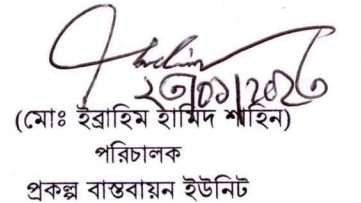 ২৩/০১/২০২৩
(মোঃ ইব্রাহিম হামিদ শাহিন)
পরিচালক
প্রকল্প বাস্তবায়ন ইউনিট